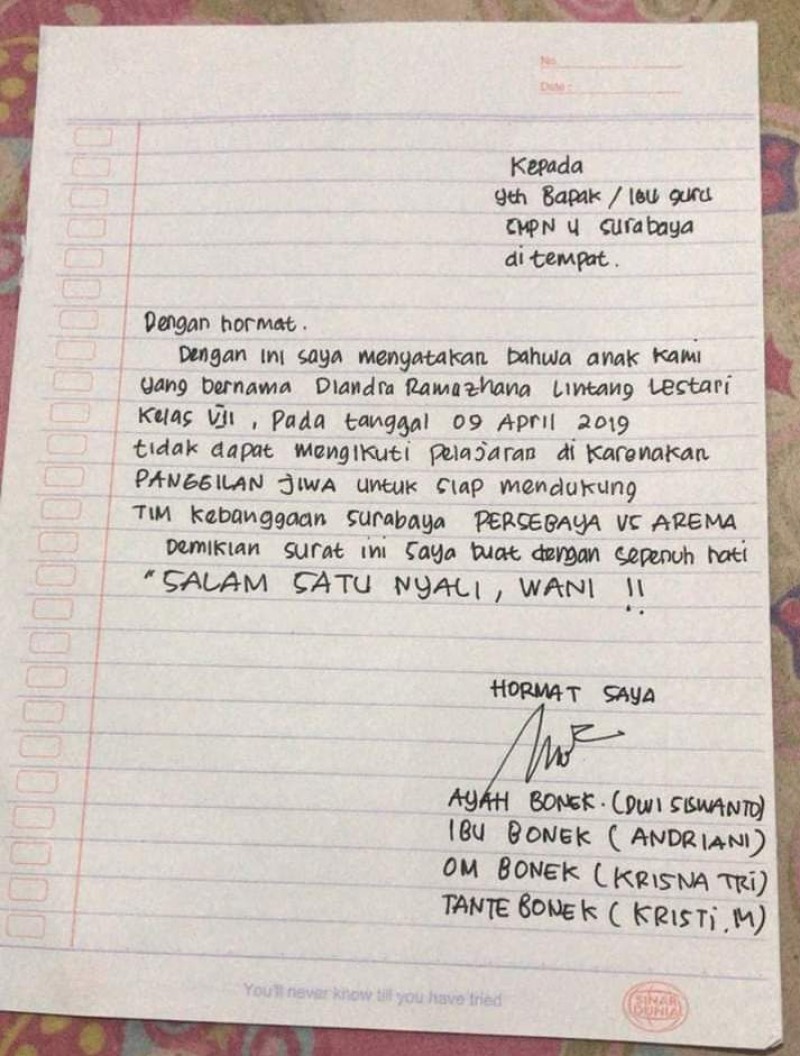 No.
Date :
Kepada
yth Bapak / Ibu guru
SMPN 4 Surabaya
di tempat.
Dengan hormat.
Dengan ini saya menyatakan bahwa anak kami
yang bernama Diandra Ramazhana Lintang Lestari
Kelas VII, Pada tanggal 09 April 2019
tidak dapat mengikuti pelajaran di karenakan
PANGGILAN JIWA untuk siap mendukung
TIM Kebanggaan Surabaya PERSEBAYA VS AREMA
Demikian surat ini saya buat dengan sepenuh hati
"SALAM SATU NYALI, WANI !!
HORMAT SAYA
AYAH BONEK. (DWI SISWANTO)
IBU BONEK (ANDRIANI)
OM BONEK (KRISNA TRI)
TANTE BONEK (KRISTI.M)
You'll never know till you have tried
SINAR
DUNIA